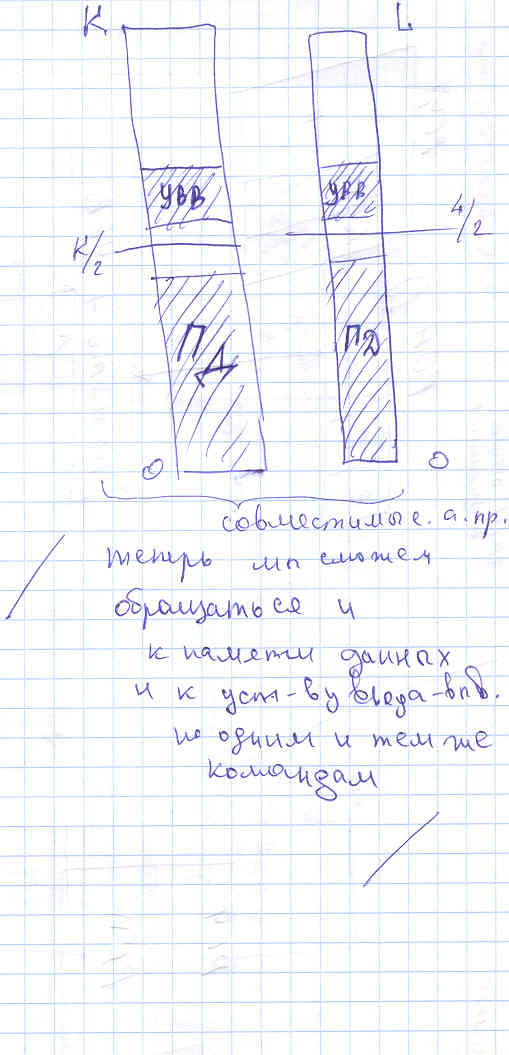 К L
УВВ УВВ
К/2 4/2
ПД ПД
0 0
совместимые. а. пр.
теперь мы сможем
обращаться и
к памяти данных
и к уст-ву ввода-выв.
по одним и тем же
командам